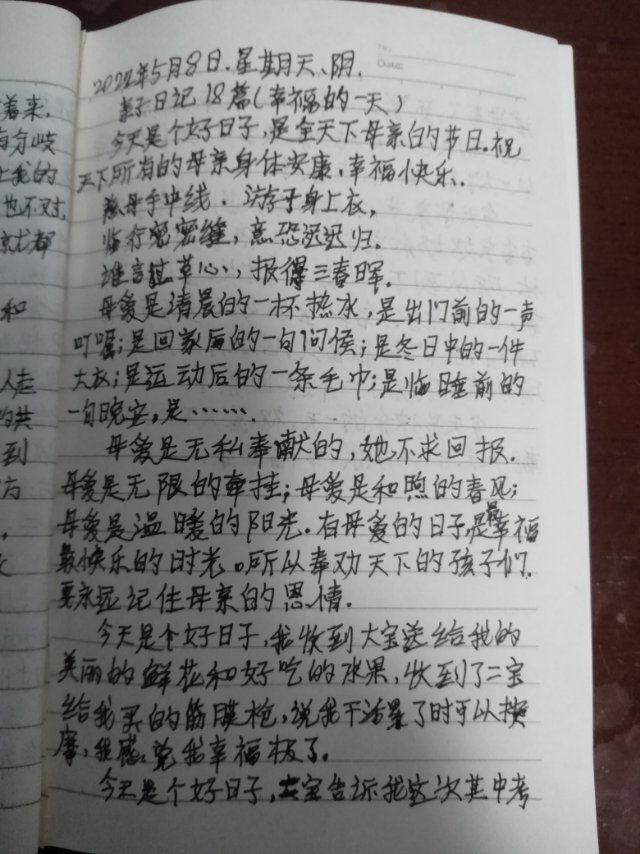 No:
Date:
2022年5月8日.星期天、阴.
亲子日记18篇(幸福的一天)
今天是个好日子,是全天下母亲的节日。祝
天下所有的母亲身体安康.幸福快乐.
慈母手中线.游子身上衣,
临行密密缝,意恐迟迟归.
谁言寸草心,报得三春晖.
母爱是清晨的一杯热水,是出门前的一声
叮嘱;是回家后的一句问侯;是冬日中的一件
大衣;是运动后的一条毛巾;是临睡前的
一句晚安,是……
母爱是无私奉献的,她不求回报.
母爱是无限的牵挂;母爱是和煦的春风;
母爱是温暖的阳光.有母爱的日子,是最幸福
最快乐的时光。所以奉劝天下的孩子们.
要永远记住母亲的恩情.
今天是个好日子,我收到大宝送给我的
美丽的鲜花和好吃的水果,收到了二宝
给我买的筋膜枪,说我干活累了时可以按
摩,我感觉我幸福极了.
今天是个好日子,二宝告诉我这次其中考
着来.
有分歧
上我的
也不对.
京尤都
和
人走
的共
到
方